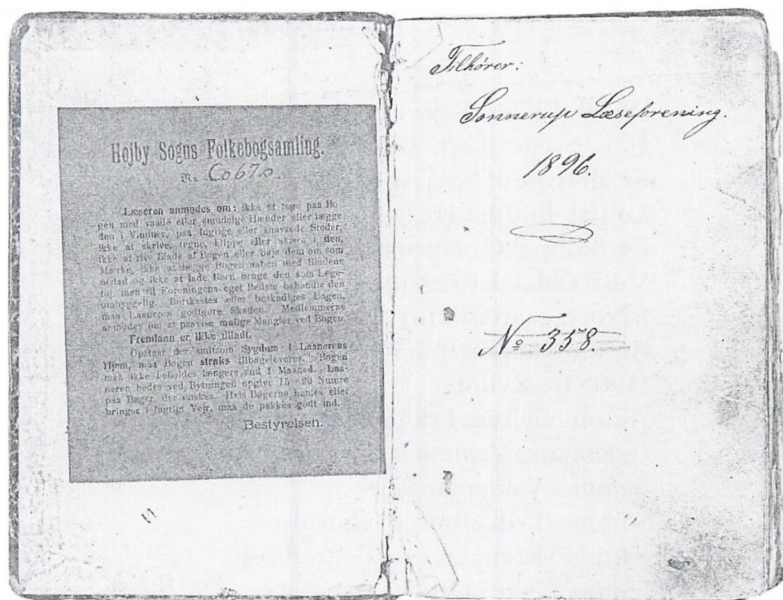 Højby Sogns Folkebogsamling.
Læseren anmodes om: ikke at tage paa Bo-
gen med vaade eller smudsige Hænder eller lægge
den i Vinduer, paa fugtige eller snavsede Steder,
ikke at skrive, tegne, klippe eller skære i den,
ikke at rive Blade af Bogen eller bøje dem om som
Mærke, ikke at lægge Bogen aaben med Bladene
nedad og ikke at lade Børn bruge den som Lege-
tøj, men til Foreningens eget Bedste behandle den
omhyggelig. Bortkastes eller beskadiges Bogen,
maa Laaneren godtgøre Skaden. Medlemmerne
anmodes om at paavise mulige Mangler ved Bogen.
Fremlaan er ikke tilladt.
Opstaar der smitsom Sygdom i Laanerens
Hjem, maa Bogen straks tilbageleveres. Bogen
maa ikke beholdes længere end 1 Maaned. Laa-
neren bedes ved Bytningen opgive 15-20 Numre
paa Bøger, der ønskes. Hvis Bøgerne hentes eller
bringes i fugtigt Vejr, maa de pakkes godt ind.
Bestyrelsen.
Tilhører:
Sonnerup Læseforening.
1896.
No 358.